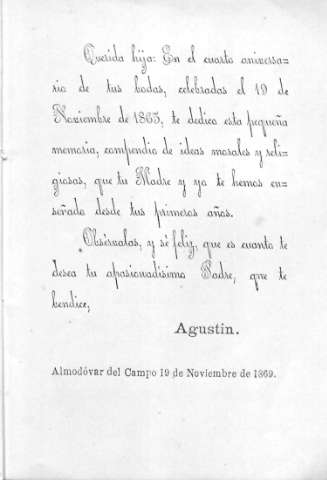 Querida hija: En el cuarto aniversa-
rio de tus bodas, celebradas el 19 de
Noviembre de 1865, te dedico esta pequeña
memoria, compendio de ideas morales y reli-
giosas, que tu Madre y yo te hemos en-
señado desde tus primeros años.
Obsérvalas, y sé feliz, que es cuanto te
desea tu apasionadísimo Padre, que te
bendice,
Agustin.
Almodóvar del Campo 19 de Noviembre de 1869.